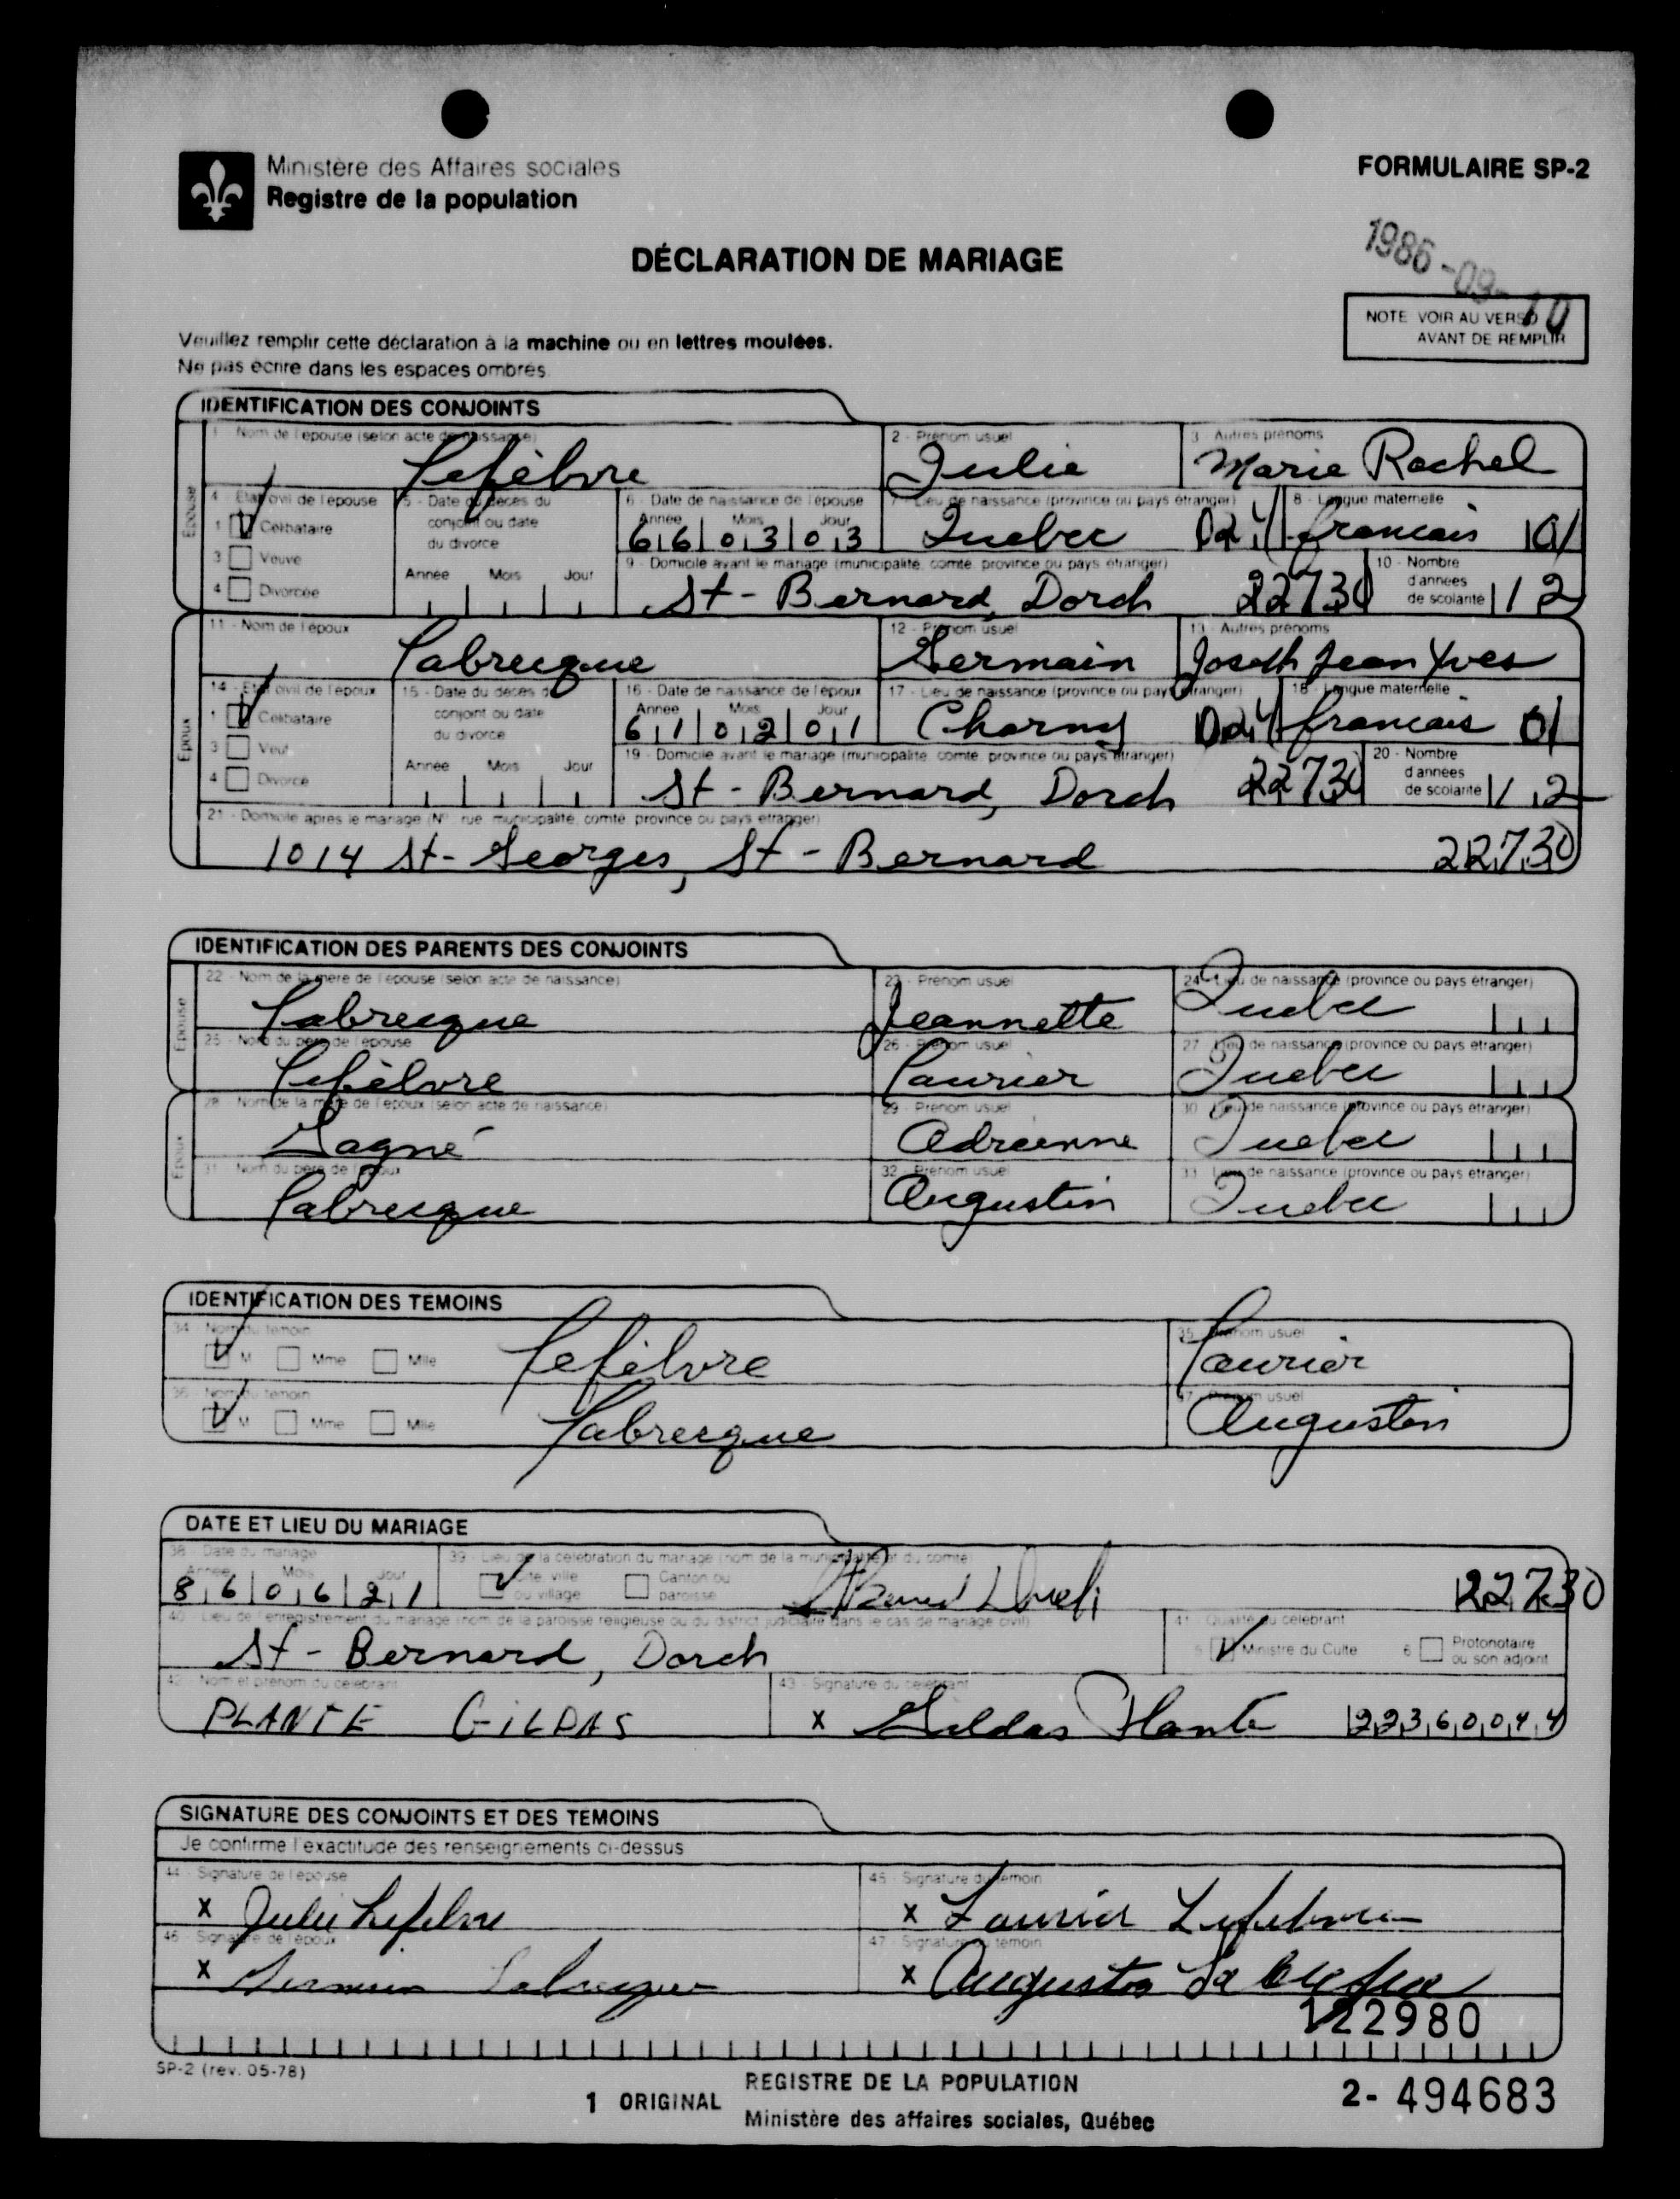 Ministère des Affaires sociales
Registre de la population
FORMULAIRE SP-2
DÉCLARATION DE MARIAGE
1986-09-10
NOTE VOIR AU VERSO
AVANT DE REMPLIR
Veuillez remplir cette déclaration à la machine ou en lettres moulées.
Ne pas écrire dans les espaces ombrés
IDENTIFICATION DES CONJOINTS
Épouse
1 - Nom de l'épouse (selon acte de naissance)
Lefèbvre
2 - Prénom usuel
Julie
3 - Autres prénoms
Marie Rachel
4 - État civil de l'épouse
1 Célibataire
3 Veuve
4 Divorcée
5 - Date du décès du
conjoint ou date
du divorce
Année Mois Jour
6 - Date de naissance de l'épouse
Année Mois Jour
66 03 03
7 - Lieu de naissance (province ou pays étranger)
Quebec
8 - Langue maternelle
francais 01
9 - Domicile avant le mariage (municipalité, comté, province ou pays étranger)
St-Bernard, Dorch 22730
10 - Nombre
d'années
de scolarité 12
Époux
11 - Nom de l'époux
Labrecque
12 - Prénom usuel
Germain
13 - Autres prénoms
Joseph Jean Yves
14 - État civil de l'époux
1 Célibataire
3 Veuf
4 Divorcé
15 - Date du décès du
conjoint ou date
du divorce
Année Mois Jour
16 - Date de naissance de l'époux
Année Mois Jour
61 02 01
17 - Lieu de naissance (province ou pays étranger)
Charny
18 - Langue maternelle
francais 01
19 - Domicile avant le mariage (municipalité, comté, province ou pays étranger)
St-Bernard, Dorch 22730
20 - Nombre
d'années
de scolarité 12
21 - Domicile après le mariage (N°, rue, municipalité, comté, province ou pays étranger)
1014 St-Georges, St-Bernard 22730
IDENTIFICATION DES PARENTS DES CONJOINTS
Épouse
22 - Nom de la mère de l'épouse (selon acte de naissance)
Labrecque
23 - Prénom usuel
Jeannette
24 - Lieu de naissance (province ou pays étranger)
Quebec
25 - Nom du père de l'épouse
Lefèbvre
26 - Prénom usuel
Laurier
27 - Lieu de naissance (province ou pays étranger)
Quebec
Époux
28 - Nom de la mère de l'époux (selon acte de naissance)
Gagné
29 - Prénom usuel
Adrienne
30 - Lieu de naissance (province ou pays étranger)
Quebec
31 - Nom du père de l'époux
Labrecque
32 - Prénom usuel
Augustin
33 - Lieu de naissance (province ou pays étranger)
Quebec
IDENTIFICATION DES TEMOINS
34 - Nom du témoin
M Mme Mlle
Lefèbvre
35 - Prénom usuel
Laurier
36 - Nom du témoin
M Mme Mlle
Labrecque
37 - Prénom usuel
Augustin
DATE ET LIEU DU MARIAGE
38 - Date du mariage
Année Mois Jour
86 06 21
39 - Lieu de la célébration du mariage (nom de la municipalité et du comté)
Cité, ville
ou village
Canton ou
paroisse
22730
40 - Lieu de l'enregistrement du mariage (nom de la paroisse religieuse ou du district judiciaire dans le cas de mariage civil)
St-Bernard, Dorch
41 - Qualité du célébrant
5 Ministre du Culte
6 Protonotaire
ou son adjoint
42 - Nom et prénom du célébrant
PLANTE GILDAS
43 - Signature du célébrant
x Gildas Plante 22360044
SIGNATURE DES CONJOINTS ET DES TEMOINS
Je confirme l'exactitude des renseignements ci-dessus
44 - Signature de l'épouse
x Julie Lefebvre
45 - Signature du témoin
x Laurier Lefebvre
46 - Signature de l'époux
x Germain Labrecque
47 - Signature du témoin
x Augustin Labrecque
122980
SP-2 (rev. 05-78)
1 ORIGINAL
REGISTRE DE LA POPULATION
Ministère des affaires sociales, Québec
2- 494683